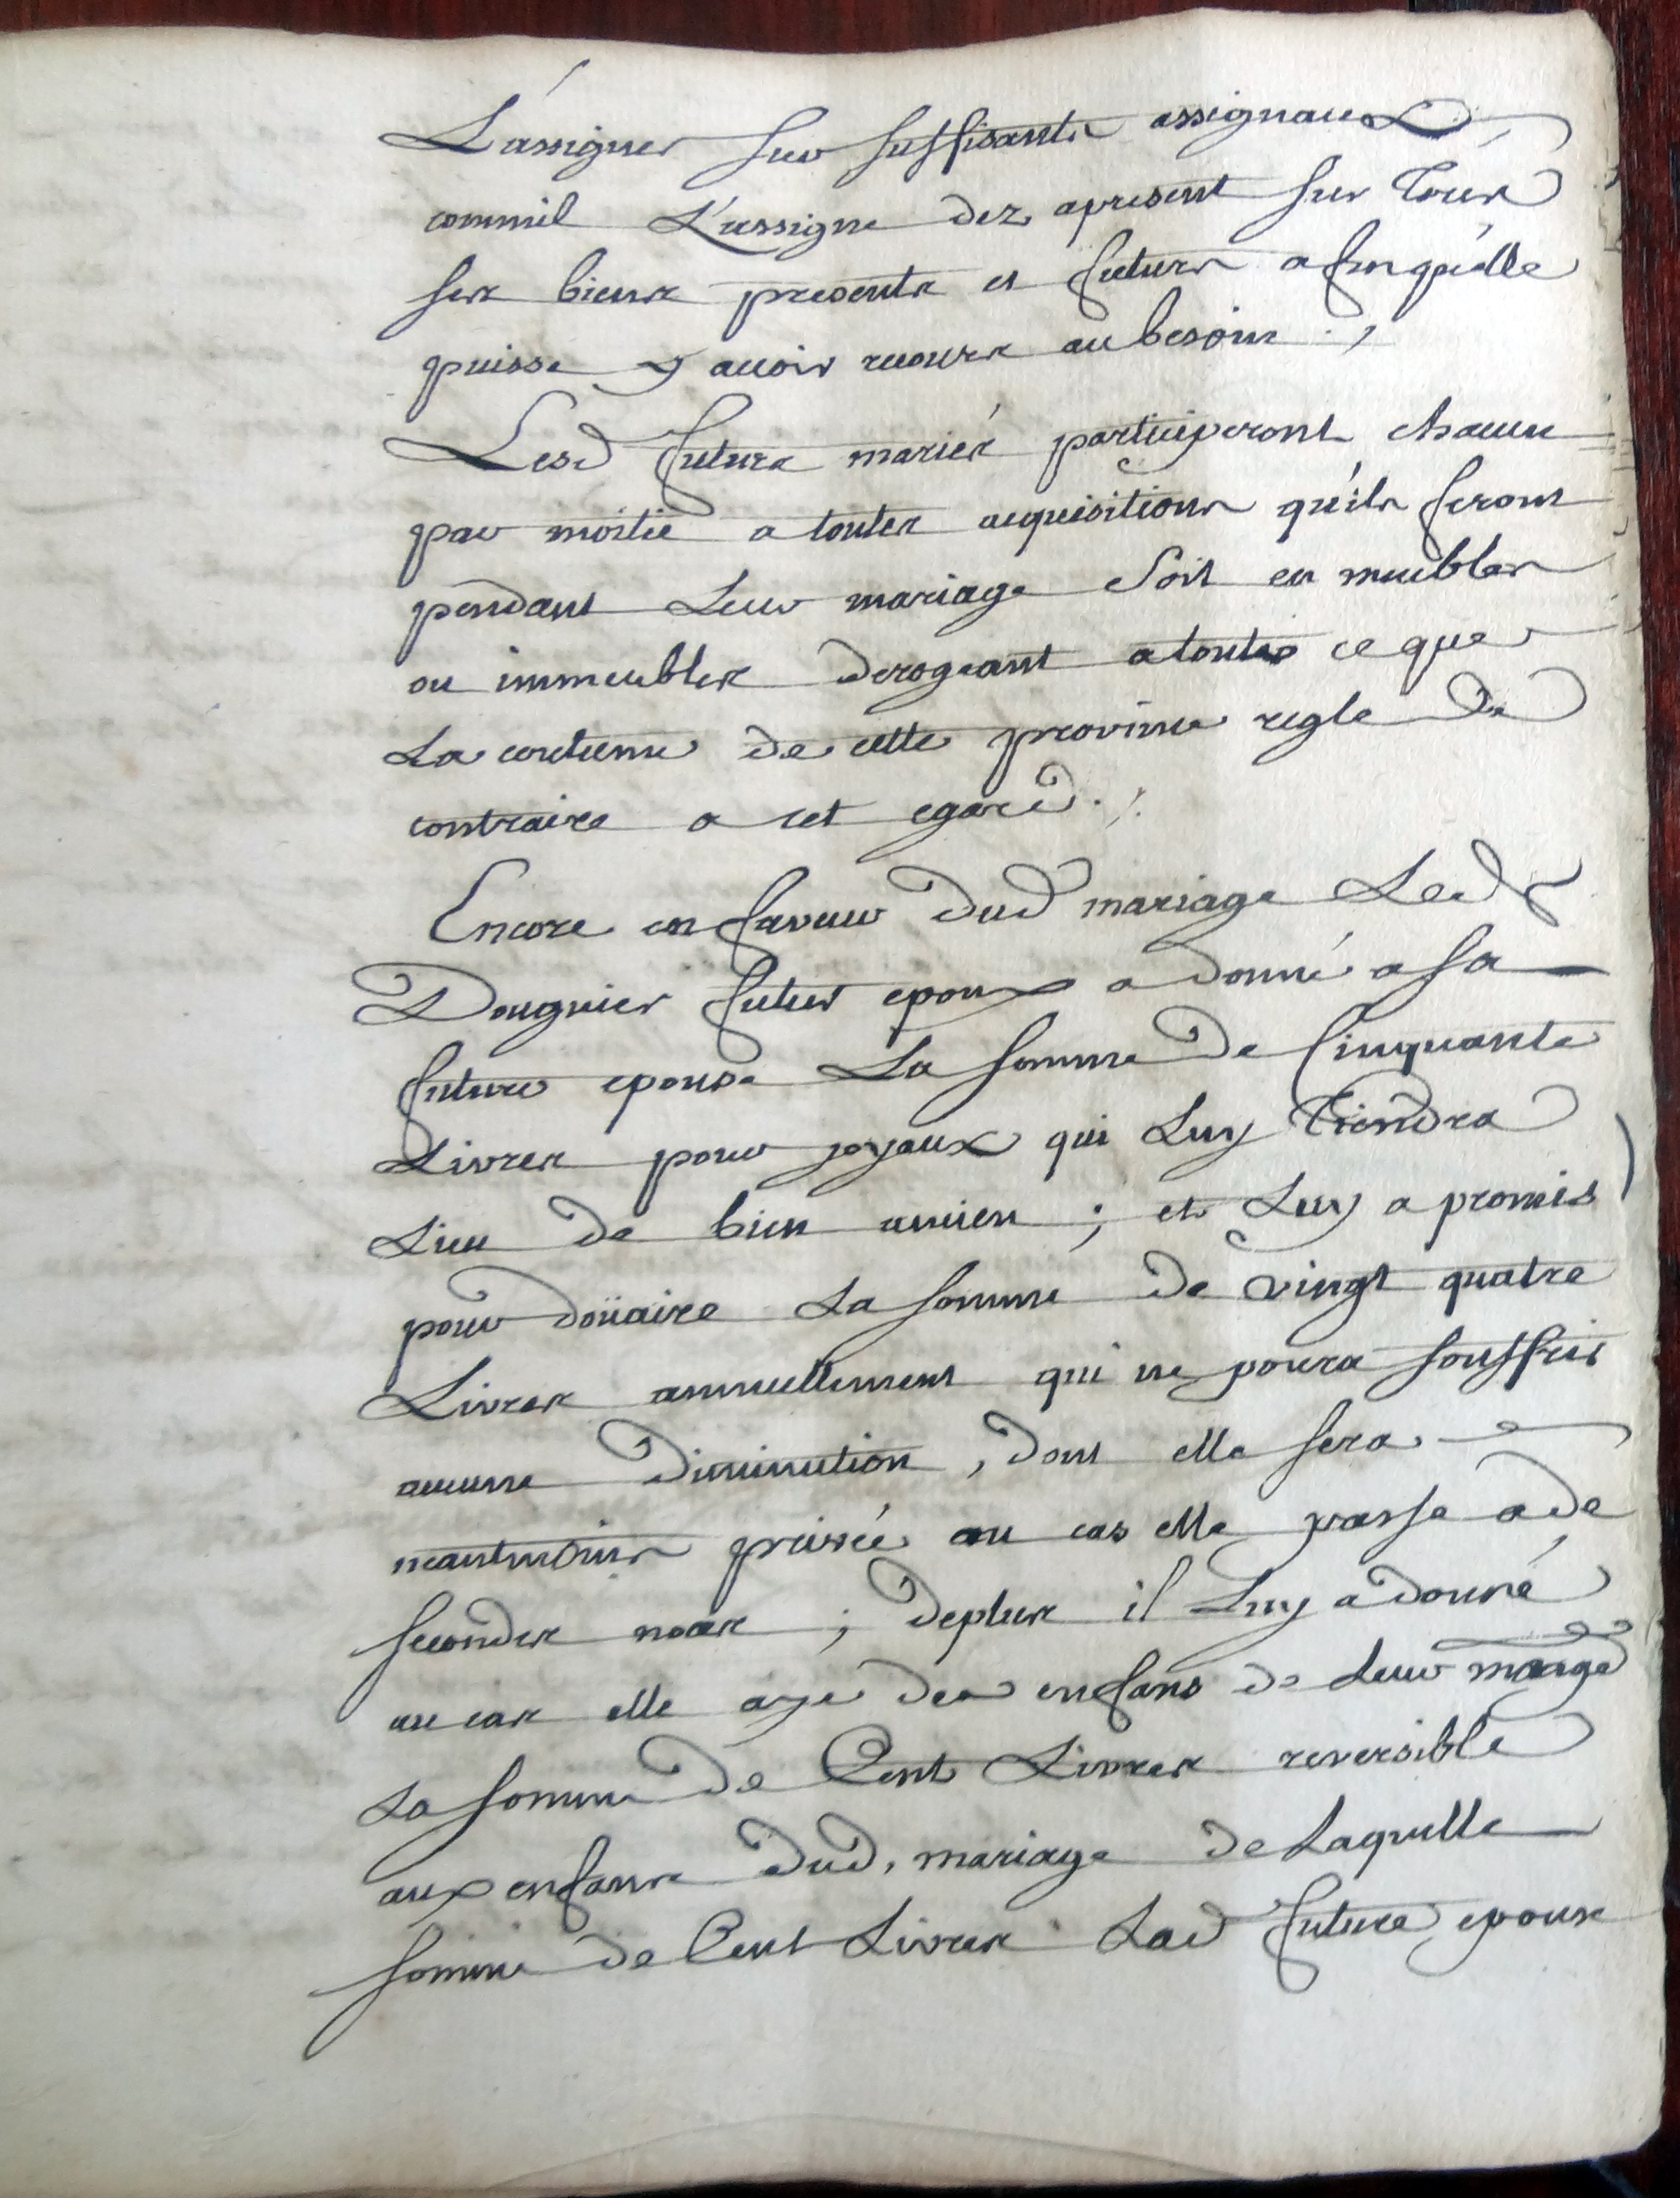 L'assigner sur suffisants assignaux
comm'il L'assigne dez apresent sur tous
ses biens presents et futurs afinqu'elle
puisse y avoir recours aubesoin ./
Lesd futurs mariés participeront chacun
par moitié a toutes acquisitions qu'ils feront
pendant Leur mariage Soit en meubles
ou immeubles derogeant atoutes ce que
La coutume de cette province regle de
contraire a cet egard ./.
Encore en faveur dud mariage Led
Douguier futur epoux a donné a sa
future epouse La somme de Cinquante
Livres pour joyaux qui Luy Tiendra
Lieu de bien ancien ; et Luy a promis
pour doüaire La somme de vingt quatre
Livres annuellement qui ne poura souffrir
aucune Diminution, dont elle sera
neantmoins privée au cas elle passe a de
secondes noces ; deplus il Luy adonné
au cas elle aye des enfans de Leur mariage
La somme de Cent Livres reversible
aux enfans dud. mariage de Laquelle
somme de Cent Livres Lad future epouse